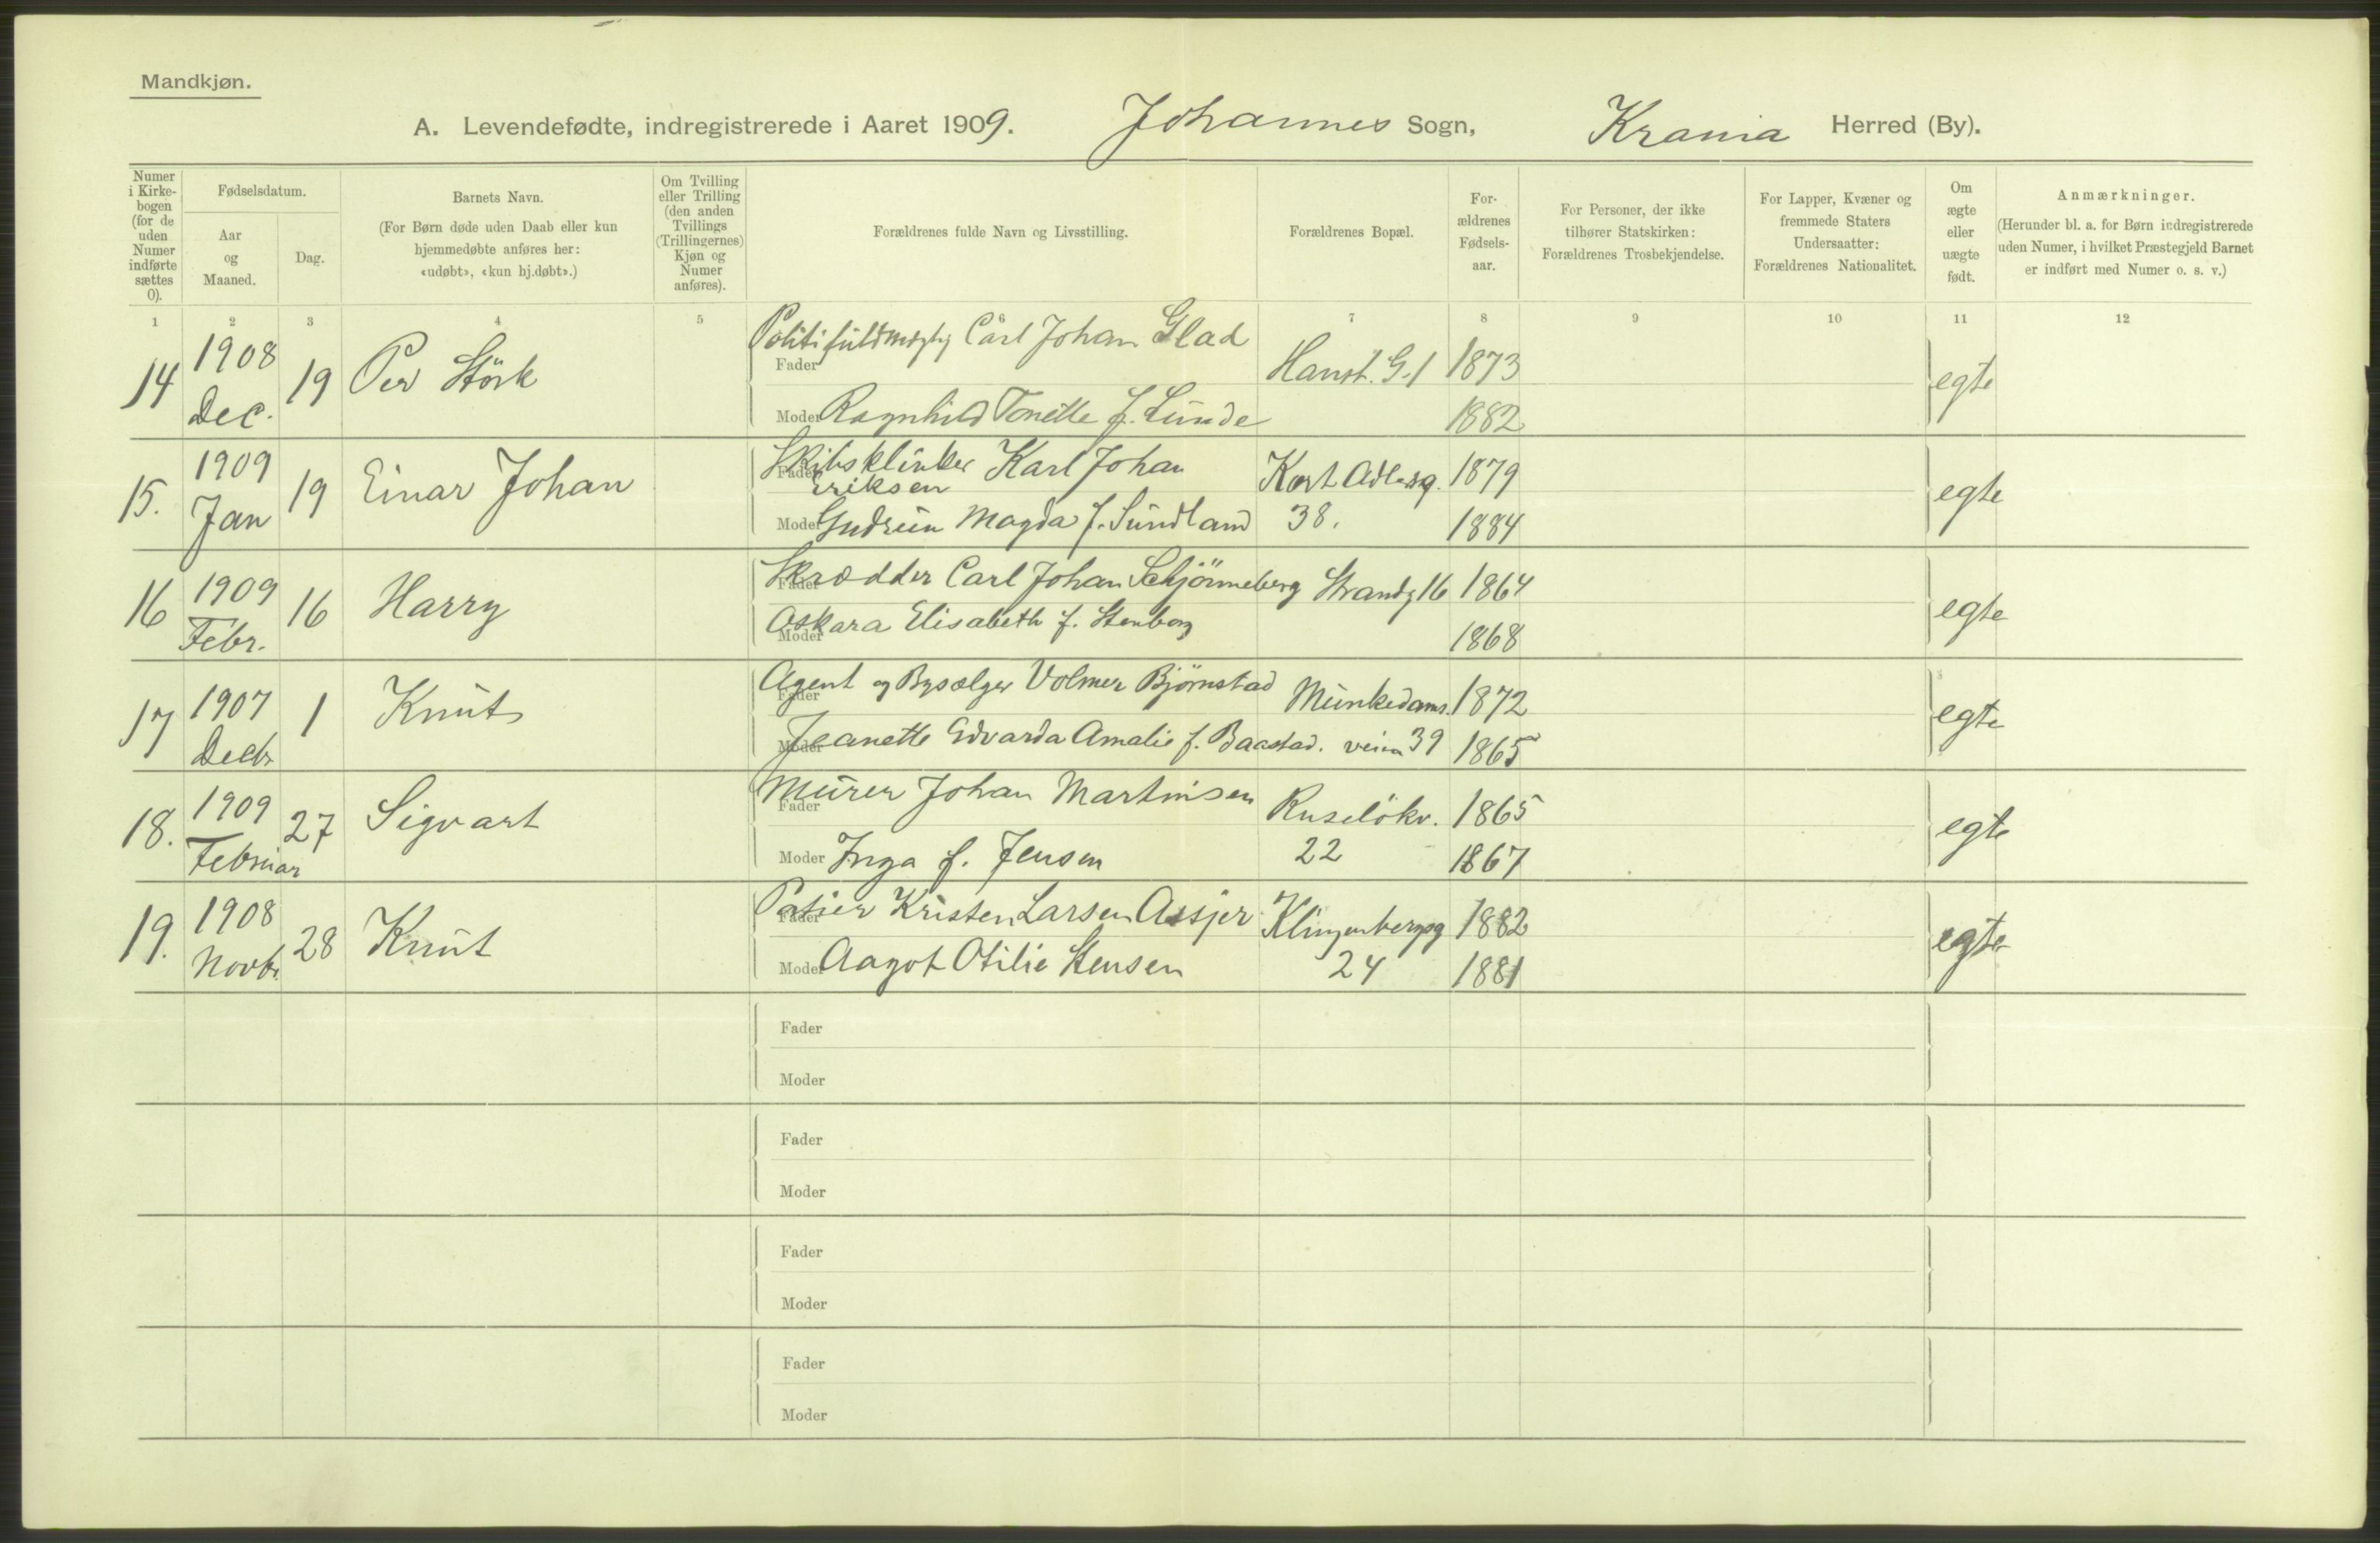 Mandkjøn.
A. Levendefødte, indregistrerede i Aaret 1909. Johannes Sogn, Krania Herred (By).
Numer i Kirkebogen (for de uden Numer indførte sættes 0).
Fødselsdatum.
Aar og Maaned.
Dag.
Barnets Navn.
(For Børn døde uden Daab eller kun hjemmedøbte anføres her: «udøbt», «kun hj.døbt».)
Om Tvilling eller Trilling (den anden Tvillings (Trillingernes) Kjøn og Numer anføres).
Forældrenes fulde Navn og Livsstilling.
Forældrenes Bopæl.
Forældrenes Fødselsaar.
For Personer, der ikke tilhører Statskirken: Forældrenes Trosbekjendelse.
For Lapper, Kvæner og fremmede Staters Undersaatter: Forældrenes Nationalitet.
Om ægte eller uægte født.
Anmærkninger.
(Herunder bl. a. for Børn indregistrerede uden Numer, i hvilket Præstegjeld Barnet er indført med Numer o. s. v.)
1 2 3 4 5 6 7 8 9 10 11 12
14 1908 Dec. 19 Per Störk
Fader Politifuldmægtig Carl Johan Glad Hanst. G. 1 1873 egte
Moder Ragnhild Tonette f. Lunde 1882
15. 1909 Jan 19 Einar Johan
Fader Skibsklinker Karl Johan Eriksen Kort Adlersg. 1879 egte
Moder Gudrun Magda f. Sundland 38. 1884
16 1909 Febr. 16 Harry
Fader Skrædder Carl Johan Schjönneberg Strandg 16 1864 egte
Moder Oskara Elisabeth f. Stenborg 1868
17 1907 Decbr 1 Knut
Fader Agent og Bysælger Volmer Bjørnstad Munkedams 1872 egte
Moder Jeanette Edvarda Amalie f. Baastad. veien 39 1865
18. 1909 Februar 27 Sigvart
Fader Murer Johan Martinsen Ruselökv. 1865 egte
Moder Inga f. Jensen 22 1867
19. 1908 Novbr. 28 Knut
Fader Kristen Larsen Assjer Klingenbergsg 1882 egte
Moder Aagot Otilie Stensen 24 1881
Fader
Moder
Fader
Moder
Fader
Moder
Fader
Moder